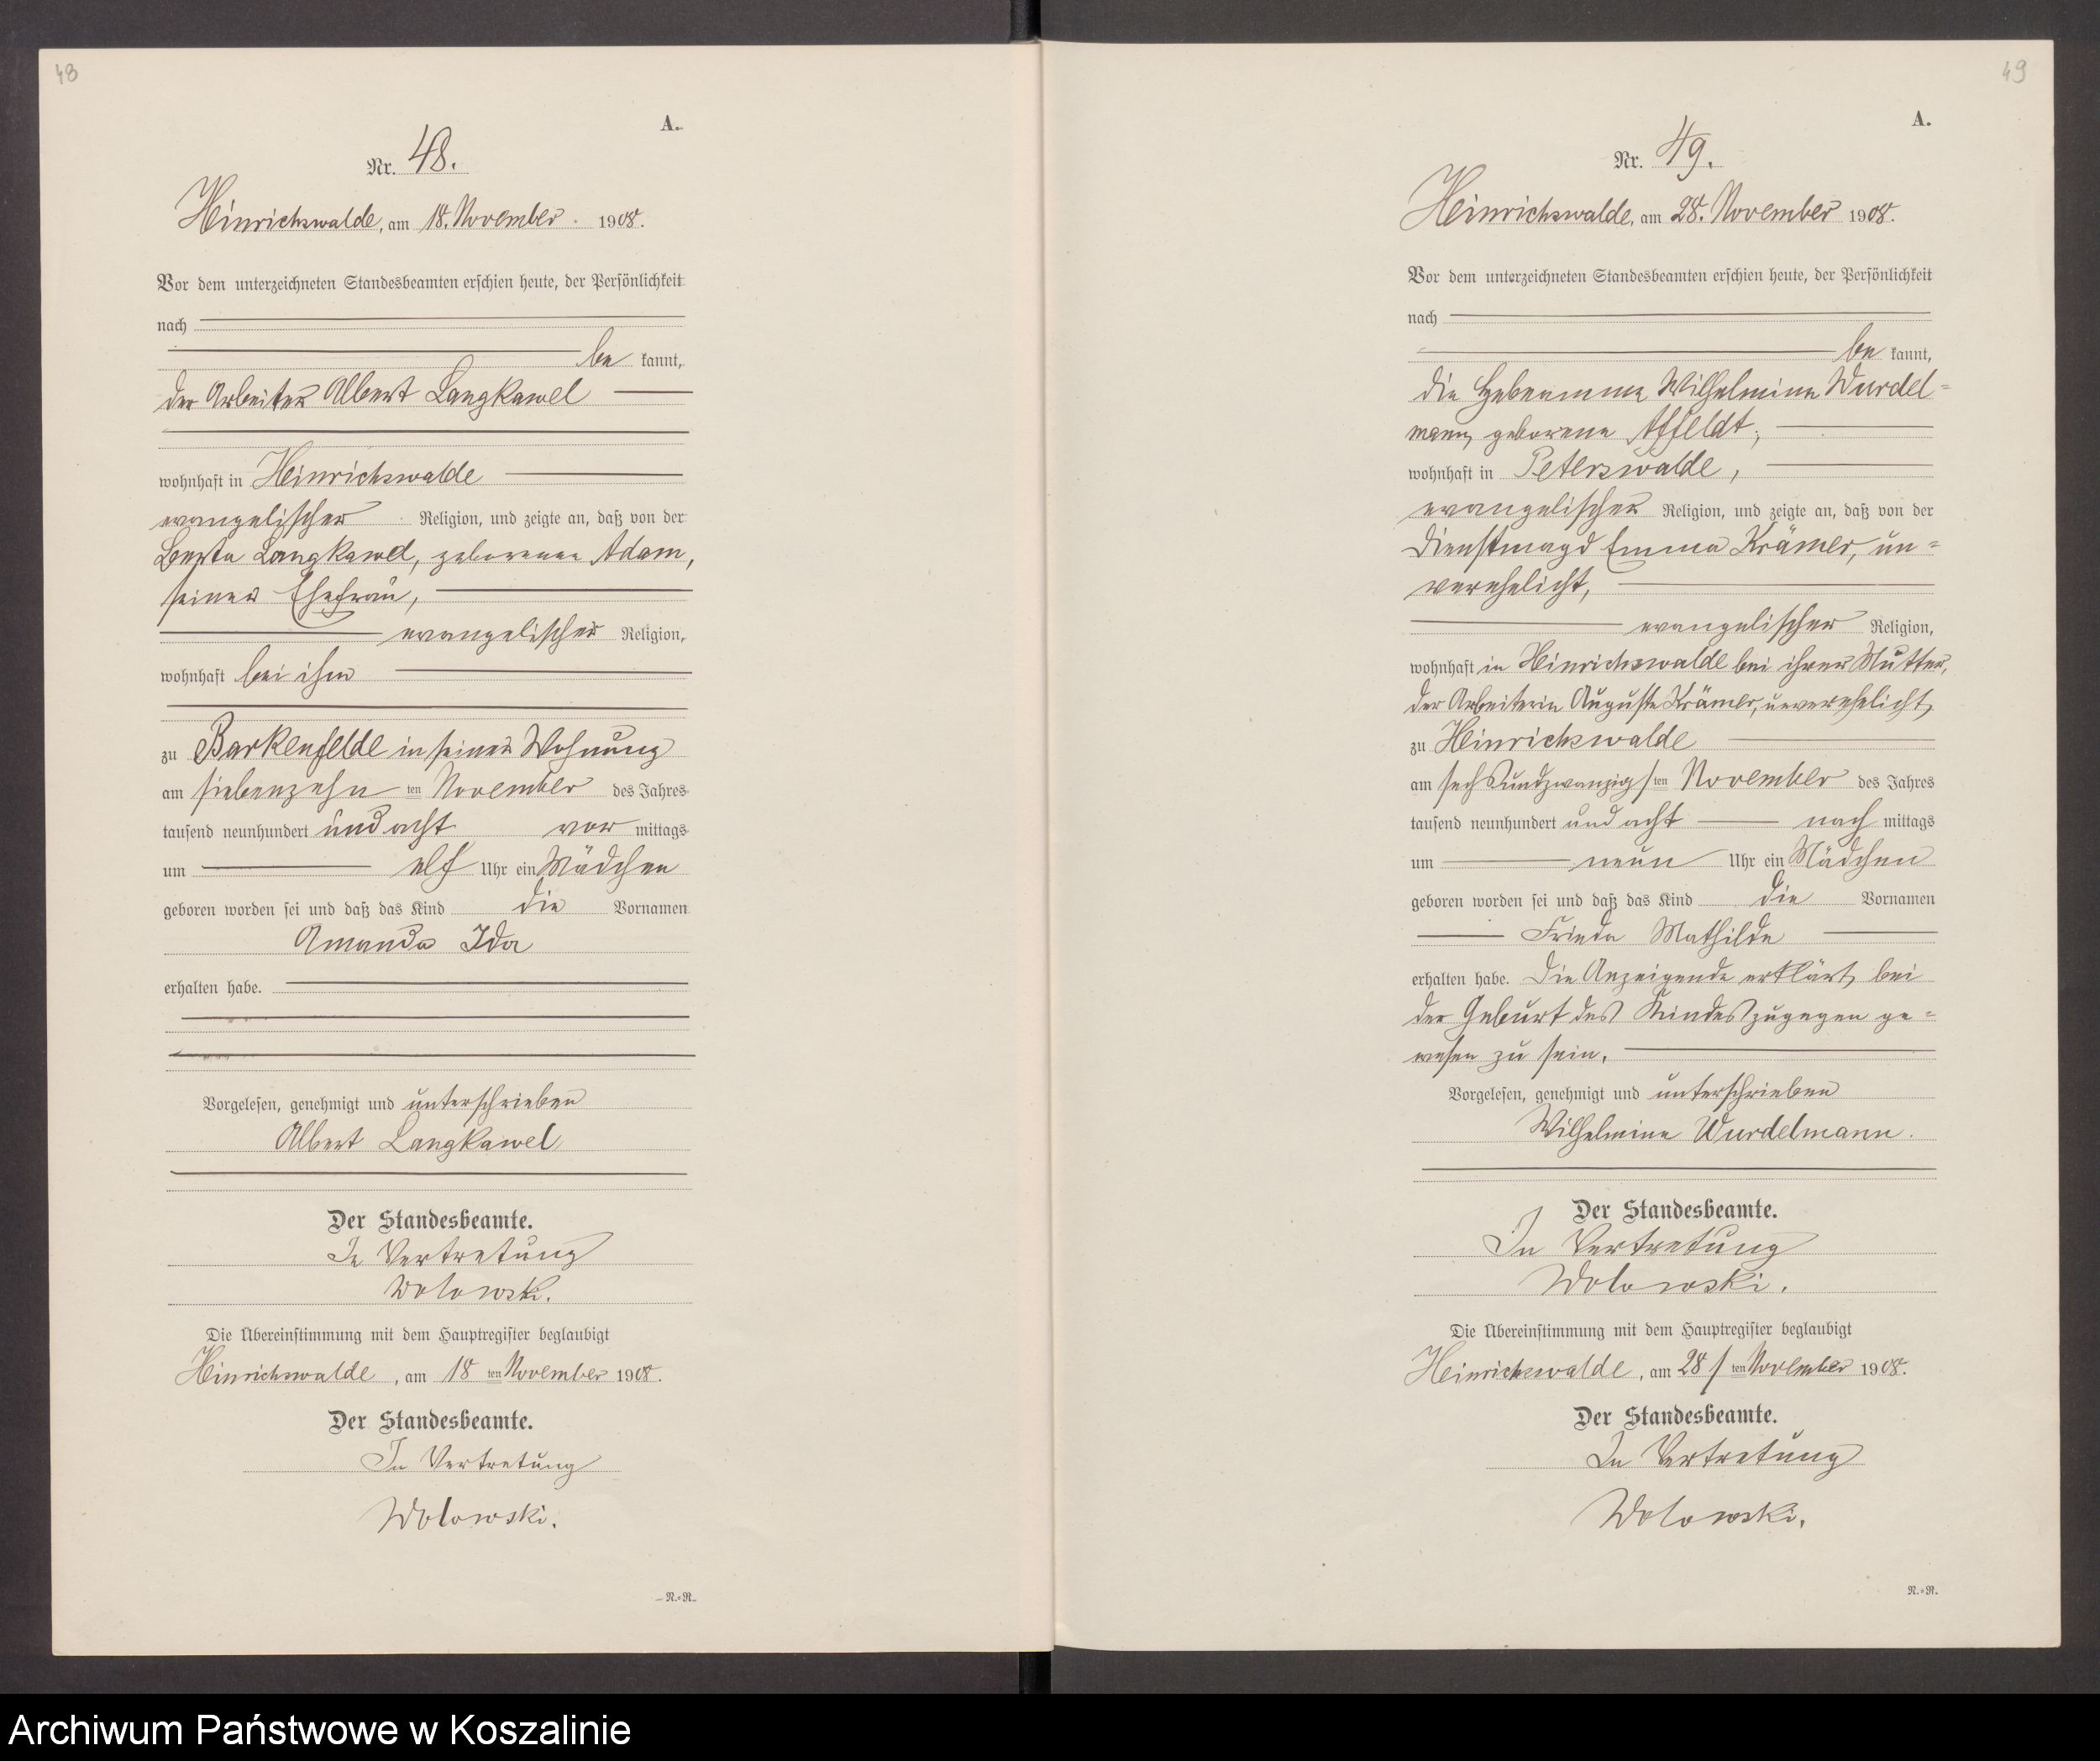 48
A.
Nr. 48.
Heinrichswalde, am 18. November 1908.
Vor dem unterzeichneten Standesbeamten erschien heute, der Persönlichkeit
nach
be kannt,
der Arbeiter Albert Langkawel
wohnhaft in Heinrichswalde
evangelischer Religion, und zeigte an, daß von der
Berta Langkawel, geborenen Adam,
seiner Ehefrau,
evangelischer Religion,
wohnhaft bei ihm
zu Barkenfelde in seiner Wohnung
am siebenzehn ten November des Jahres
tausend neunhundert und acht vor mittags
um elf Uhr ein Mädchen
geboren worden sei und daß das Kind die Vornamen
Amanda Ida
erhalten habe.
Vorgelesen, genehmigt und unterschrieben
Albert Langkawel
Der Standesbeamte.
In Vertretung
Wolowski.
Die Übereinstimmung mit dem Hauptregister beglaubigt
Heinrichswalde, am 18 ten November 1908.
Der Standesbeamte.
In Vertretung
Wolowski.
N.=R.
49
A.
Nr. 49.
Heinrichswalde, am 28. November 1908.
Vor dem unterzeichneten Standesbeamten erschien heute, der Persönlichkeit
nach
be kannt,
die Hebeamme Wilhelmine Wurdel=
mann, geborene Affeldt,
wohnhaft in Peterswalde,
evangelischer Religion, und zeigte an, daß von der
Dienstmagd Emma Krämer, un=
verehelicht,
evangelischer Religion,
wohnhaft in Heinrichswalde bei ihrer Mutter,
der Arbeiterin Auguste Krämer, unverehelicht,
zu Heinrichswalde
am sechsundzwanzig ten November des Jahres
tausend neunhundert und acht nach mittags
um neun Uhr ein Mädchen
geboren worden sei und daß das Kind die Vornamen
Frieda Mathilde
erhalten habe. Die Anzeigende erklärt, bei
der Geburt des Kindes zugegen ge=
wesen zu sein.
Vorgelesen, genehmigt und unterschrieben
Wilhelmine Wurdelmann.
Der Standesbeamte.
In Vertretung
Wolowski.
Die Übereinstimmung mit dem Hauptregister beglaubigt
Heinrichswalde, am 28 ten November 1908.
Der Standesbeamte.
In Vertretung
Wolowski.
N.=R.
Archiwum Państwowe w Koszalinie